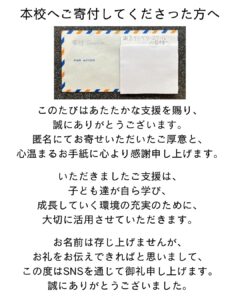 本校へご寄付してくださった方へ
このたびはあたたかな支援を賜り、
誠にありがとうございます。
匿名にてお寄せいただいたご厚意と、
心温まるお手紙に心より感謝申し上げます。
いただきましたご支援は、
子ども達が自ら学び、
成長していく環境の充実のために、
大切に活用させていただきます。
お名前は存じ上げませんが、
お礼をお伝えできればと思いまして、
この度はSNSを通じて御礼申し上げます。
誠にありがとうございました。